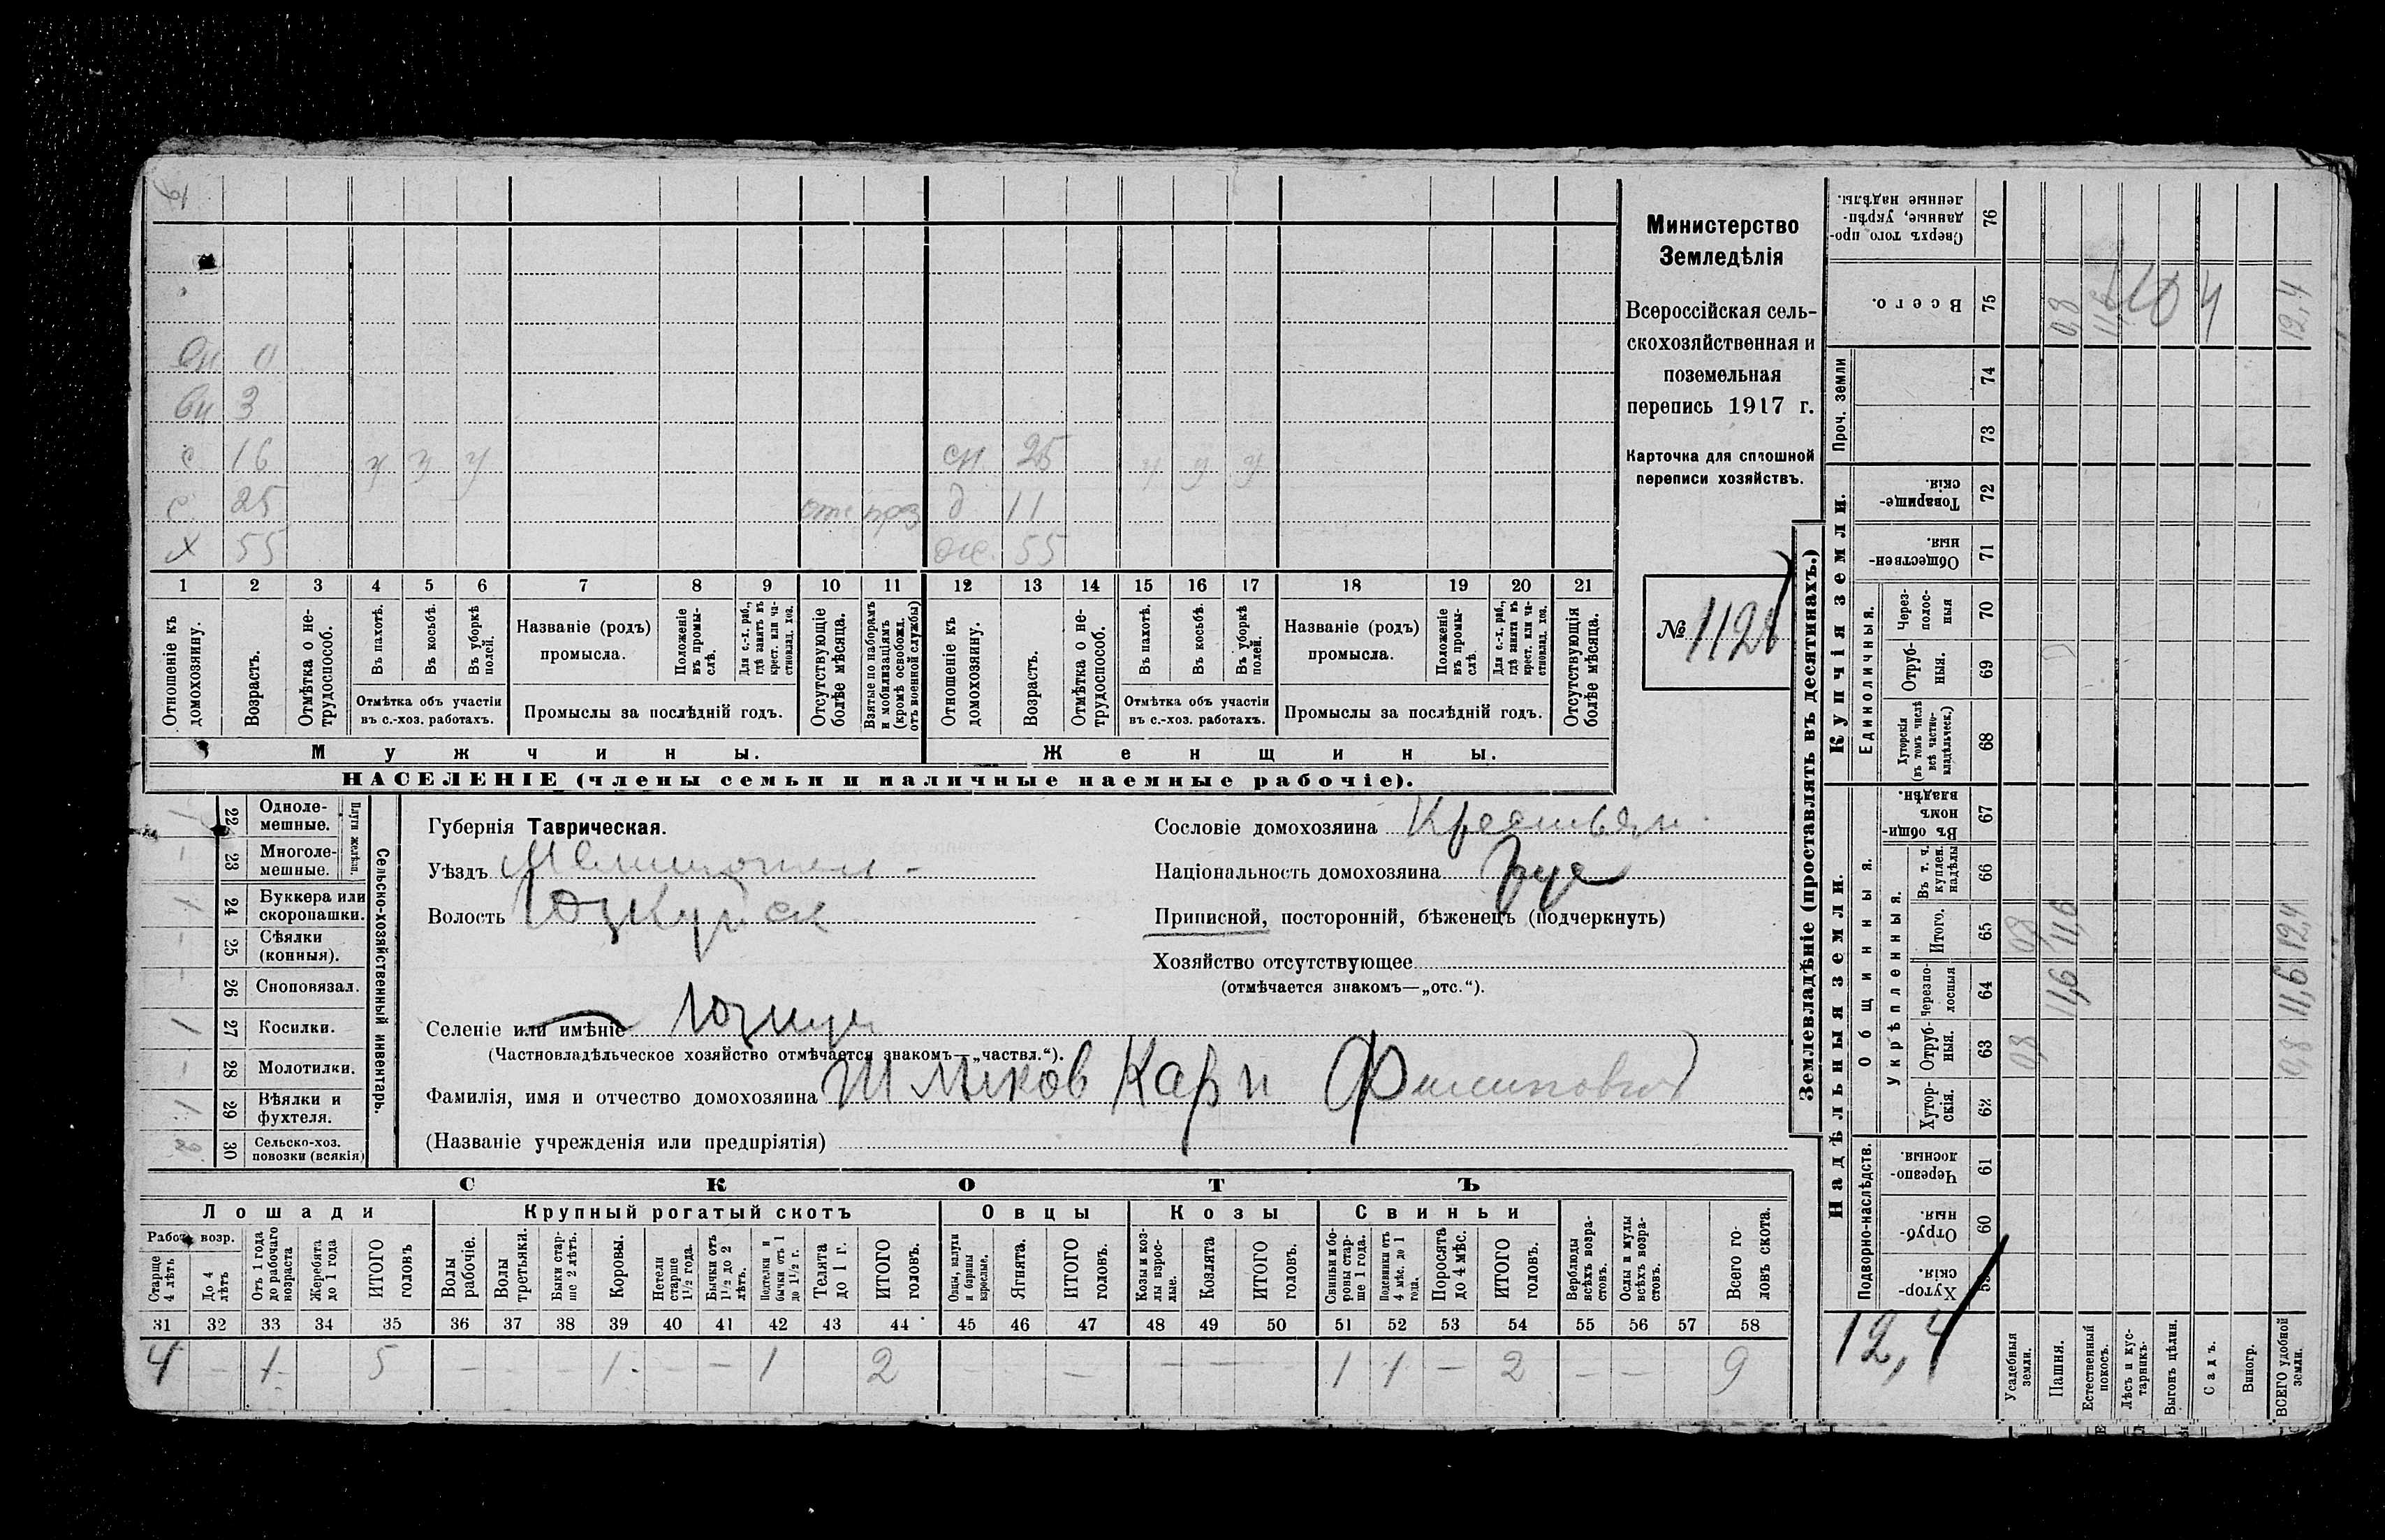 Министерство
Земледѣлія
Всероссійская сель-
скохозяйственная и
поземельная
перепись 1917 г.
Карточка для сплошной
переписи хозяйствъ.
№ 1121
вн 3
с 16 у у у сн 25 у у у
с 25 отс д 11
х 55 же. 55
1 2 3 4 5 6 7 8 9 10 11 12 13 14 15 16 17 18 19 20 21
Отношеніе къ домохозяину.
Возрастъ.
Отмѣтка о не-трудоспособ.
Въ пахотѣ.
Въ косьбѣ.
Въ уборкѣ полей.
Отмѣтка объ участіи
въ с.-хоз. работахъ.
Названіе (родъ)
промысла.
Положеніе въ промы-слѣ.
Для с.-х. раб., гдѣ занятъ въ крест. или ча-стновлад. хоз.
Промыслы за послѣдній годъ.
Отсутствующіе болѣе мѣсяца.
Взятые по наборамъ и мобилизаціямъ (кромѣ освобожд. отъ военной службы)
Отношеніе къ домохозяину.
Возрастъ.
Отмѣтка о не-трудоспособ.
Въ пахотѣ.
Въ косьбѣ.
Въ уборкѣ полей.
Отмѣтка объ участіи
въ с.-хоз. работахъ.
Названіе (родъ)
промысла.
Положеніе въ промы-слѣ.
Для с.-х. раб., гдѣ занята въ крест. или ча-стновлад. хоз.
Промыслы за послѣдній годъ.
Отсутствующія болѣе мѣсяца.
Мужчины. Женщины.
НАСЕЛЕНІЕ (члены семьи и наличные наемные рабочіе).
Сельско-хозяйственный инвентарь.
Плуги желѣзн.
22 Одноле-мешные. 1
23 Многоле-мешные. –
24 Буккера или скоропашки. 1
25 Сѣялки (конныя). –
26 Сноповязал. –
27 Косилки. 1
28 Молотилки. –
29 Вѣялки и фухтеля. 1
30 Сельско-хоз. повозки (всякія) 2
Губернія Таврическая.
Уѣздъ Мелитопол -
Волость Юзкуйск
Селеніе или имѣніе Юзкуи
(Частновладѣльческое хозяйство отмѣчается знакомъ—„частвл.“).
Фамилія, имя и отчество домохозяина Шмыков Карп Филипович
(Названіе учрежденія или предпріятія)
Сословіе домохозяина Крестьян.
Національность домохозяина рус
Приписной, посторонній, бѣженецъ (подчеркнуть)
Хозяйство отсутствующее
(отмѣчается знакомъ—„отс.“).
СКОТЪ
Лошади Крупный рогатый скотъ Овцы Козы Свиньи
Работ. возр.
Старше 4 лѣтъ
До 4 лѣтъ
Отъ 1 года до рабочаго возраста
Жеребята до 1 года
ИТОГО головъ
Волы рабочіе.
Волы третьяки.
Быки стар-ше 2 лѣтъ.
Коровы.
Нетели старше 1½ года.
Бычки отъ 1½ до 2 лѣтъ.
Подтелки и бычки отъ 1 до 1½ г.
Телята до 1 г.
ИТОГО головъ.
Овцы, валухи и бараны взрослые.
Ягнята.
ИТОГО головъ.
Козы и коз-лы взрос-лые.
Козлята
ИТОГО головъ.
Свиньи и бо-ровы стар-ше 1 года.
Подсвинки отъ 4 мѣс. до 1 года.
Поросята до 4 мѣс.
ИТОГО головъ.
Верблюды всѣхъ возра-стовъ.
Ослы и мулы всѣхъ возра-стовъ.
Всего го-ловъ скота.
31 32 33 34 35 36 37 38 39 40 41 42 43 44 45 46 47 48 49 50 51 52 53 54 55 56 57 58
4 – 1 5 – – – 1 – – 1 2 – – – – – 1 1 – 2 – – 9
Землевладѣніе (проставлять въ десятинахъ.)
Надѣльныя земли. Купчія земли. Проч. земли
Подворно-наслѣдств.
Общинныя.
Укрѣпленныя.
Единоличныя.
Хутор-скія. 59
Отруб-ныя. 60
Черезпо-лосныя 61
Хутор-скія. 62
Отруб-ныя. 63
Черезпо-лосныя 64
Итого. 65
Въ т. ч. куплен. надѣлы 66
Въ общи-номъ владѣн. 67
Хуторскія (въ томъ числѣ всѣ частно-владѣльческ.) 68
Отруб-ныя. 69
Черезполос-ныя 70
Обществен-ныя. 71
Товарище-скія. 72
73
74
Всего. 75
Сверхъ того про-данные, укрѣп-ленные надѣлы. 76
12,4
Усадебныя земли. 0,8 0,8
Пашня. 11,6 11,6 0,8
Естественный покосъ. 11,6
Лѣсъ и кус-тарникъ.
Выгонъ цѣлин.
Садъ.
Виногр.
ВСЕГО удобной земли. 0,8 11,6 12,4 12,4